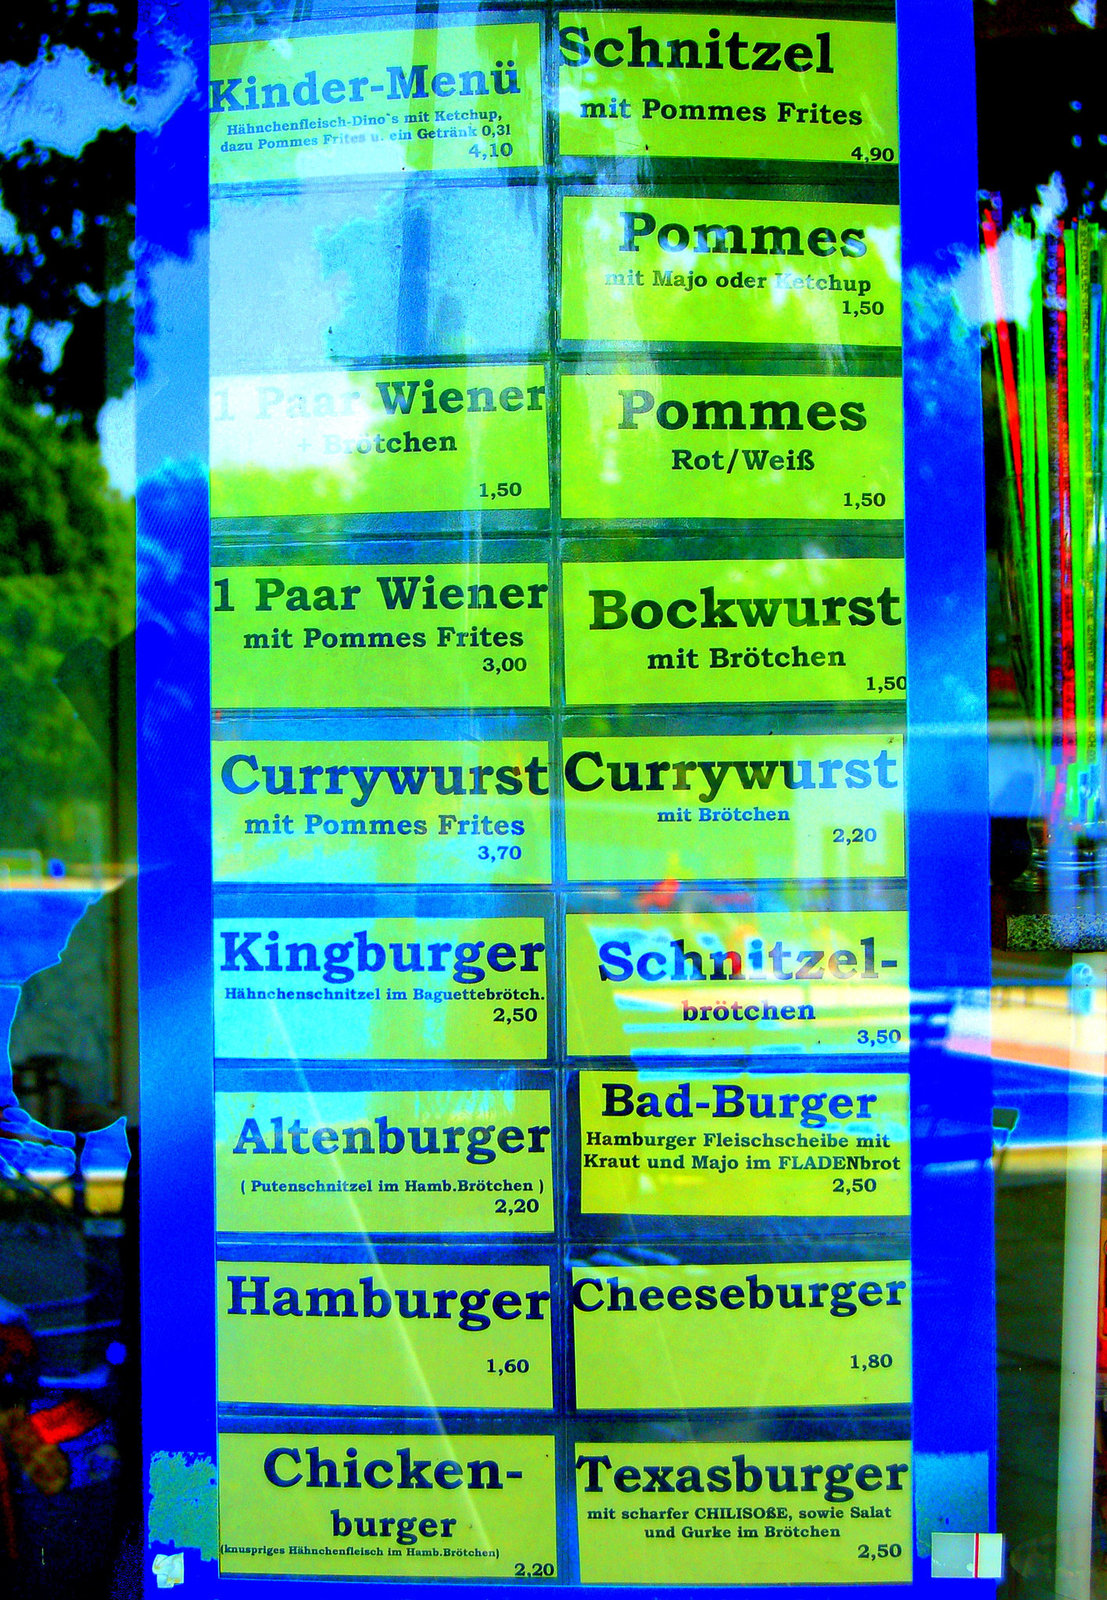 Kinder-Menü
Hähnchenfleisch-Dino`s mit Ketchup,
dazu Pommes Frites u. ein Getränk 0,3l
4,10
Schnitzel
mit Pommes Frites
4,90
Pommes
mit Majo oder Ketchup
1,50
1 Paar Wiener
+ Brötchen
1,50
Pommes
Rot/Weiß
1,50
1 Paar Wiener
mit Pommes Frites
3,00
Bockwurst
mit Brötchen
1,50
Currywurst
mit Pommes Frites
3,70
Currywurst
mit Brötchen
2,20
Kingburger
Hähnchenschnitzel im Baguettebrötch.
2,50
Schnitzel-
brötchen
3,50
Altenburger
( Putenschnitzel im Hamb.Brötchen )
2,20
Bad-Burger
Hamburger Fleischscheibe mit
Kraut und Majo im FLADENbrot
2,50
Hamburger
1,60
Cheeseburger
1,80
Chicken-
burger
(knuspriges Hähnchenfleisch im Hamb.Brötchen)
2,20
Texasburger
mit scharfer CHILISOßE, sowie Salat
und Gurke im Brötchen
2,50